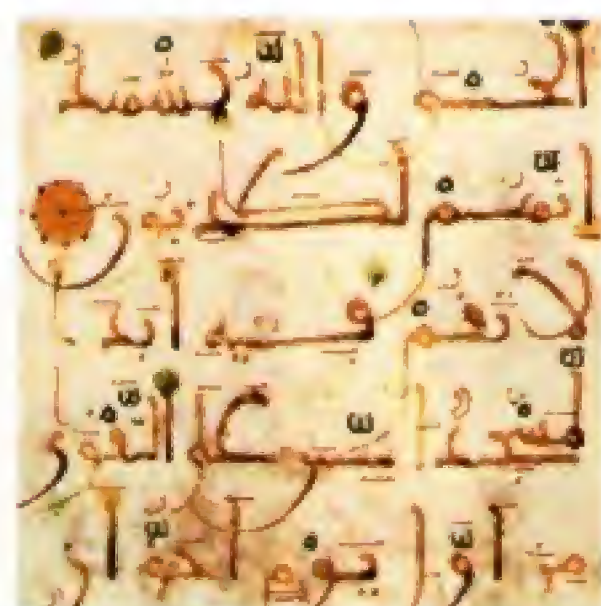 الحسنى والله يشهد
إنهم لكذبون
لا تقم فيه أبدا
لمسجد أسس على التقوى
من أول يوم أحق أن